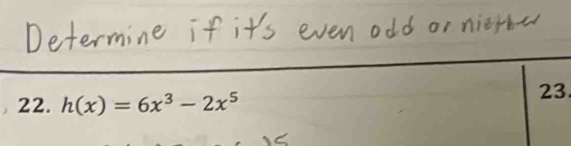 Determine if it's even odd or niether
22. h(x) = 6x³ − 2x⁵
23.